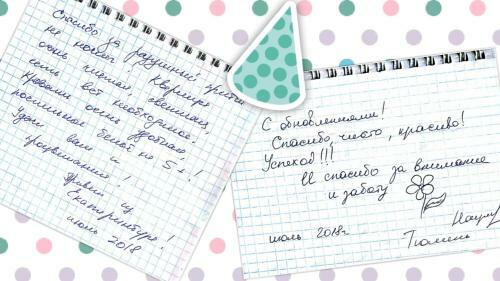 Спасибо за радушный приём
Квартира
очень чистая,
есть всё необходимое.
Кровати очень удобные,
постельное бельё на 5+!
Удачи вам и
процветания!
Привет из
Екатеринбурга!
июль 2018
С обновлениями!
Спасибо, чисто, красиво!
Успехов!!!
И спасибо за внимание
и заботу
июль 2018г.
Тюмень